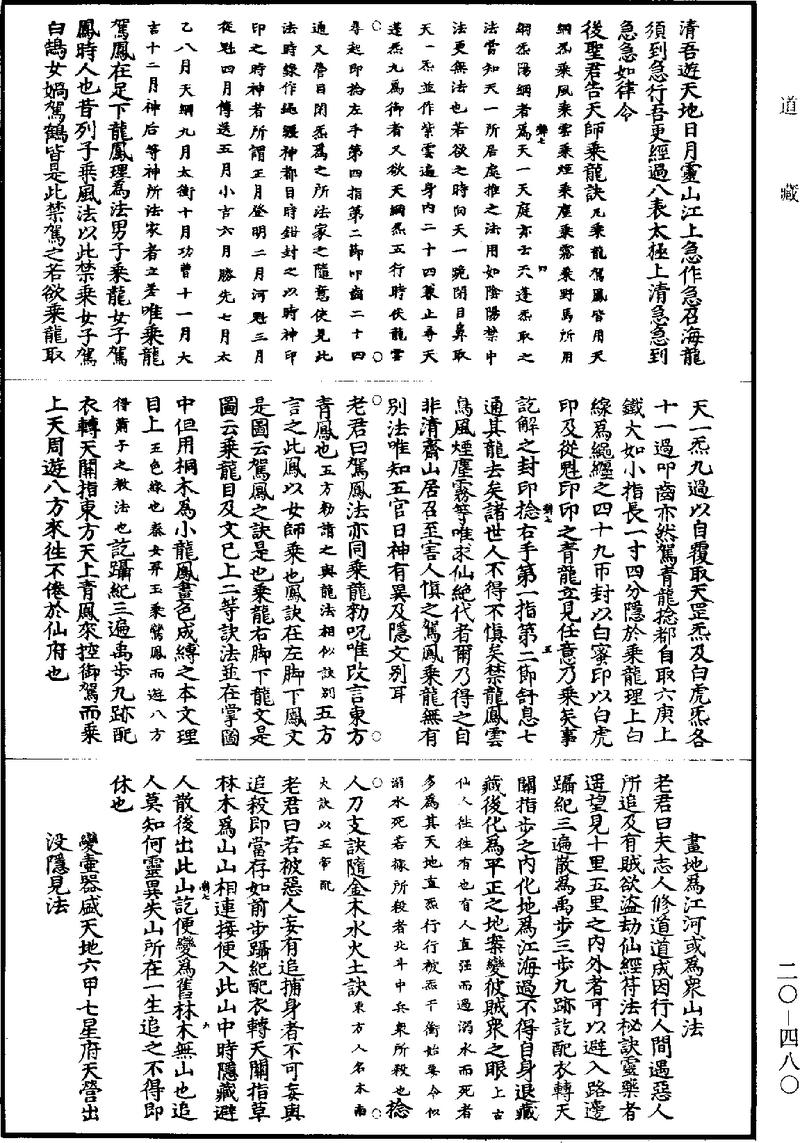 道藏
二〇—四八〇
清吾遊天地日月靈山江上急作急召海龍
須到急行吾更經過八表太極上清急急到
急急如律令
後聖君告天師乘龍訣凡乘龍駕鳳皆用天
綱炁乘風乘雲乘煙乘塵乘霧乘野馬所用
綱炁陽綱者為天一天庭亦云天蓬炁取之
法當知天一所居處推之法用如陰陽禁中
法更無法也若欲之時向天一晥閉目鼻取
天一炁並作紫雲遍身內二十四兼止尋天
蓬炁九為御者又欲天綱炁五行時伏龍雲
尋起印捻左手第四指第二節叩齒二十四
通又瞥目閉炁為之所法家之隨意使見此
法時錄作繩纏神都目時鉗封之以時神印
印之時神者所謂正月登明二月河魁三月
從魁四月傳送五月小吉六月勝先七月太
乙八月天綱九月太衝十月功曹十一月大
吉十二月神后等神所法家者立若唯乘龍
駕鳳在足下龍鳳理為法男子乘龍女子駕
鳳時人也昔列子乘風法以此禁乘女子駕
白鵠女媧駕鶴皆是此禁駕之若欲乘龍取
天一炁九過以自覆取天罡炁及白虎炁各
十一過叩齒亦然駕青龍捻都自取六庚上
鐵大如小指長一寸四分隱於乘龍理上白
線為繩纏之四十九帀封以白蜜印以白虎
印及從魁印印之青龍立見任意乃乘矣事
訖解之封印捻右手第一指第二節舒息七
通其龍去矣諸世人不得不慎矣禁龍鳳雲
鳥風煙塵霧等唯求仙絕代者爾乃得之自
非清齋山居召至害人慎之駕鳳乘龍無有
別法唯知五官日神有異及隱文別耳
老君曰駕鳳法亦同乘龍勑呪唯改言東方
青鳳也五方勑請之與龍法相似訣別五方
言之此鳳以女師乘也鳳訣在左脚下鳳文
是圖云駕鳳之訣是也乘龍右脚下龍文是
圖云乘龍目及文已上二等訣法並在掌圖
中但用桐木為小龍鳳畫色成縛之本文理
目上五色線也秦女弄玉乘鸞鳳而遊八方
得蕭子之教法也訖躡紀三遍禹步九跡配
衣轉天關指東方天上青鳳來控御駕而乘
上天周遊八方來往不倦於仙府也
畫地為江河或為眾山法
老君曰夫志人修道道成因行人間遇惡人
所追及有賊欲盜劫仙經符法秘訣靈藥者
遥望見十里五里之內外者可以避入路邊
躡紀三遍散為禹步三步九跡訖配衣轉天
關指步之內化地為江海過不得自身退藏
藏後化為平正之地案變彼賊眾之眼上古
仙人往往有也有人直强而過溺水而死者
多為其天地直炁行行被炁干衝始喪令似
溺水死若擬所殺者北斗中兵衆所殺也捻
人刀支訣隨金木水火土訣東方人名木南
火訣以五帝配
老君曰若被惡人妄有追捕身者不可妄與
追殺即當存如前步躡紀配衣轉天關指草
林木為山山相連接便入此山中時隱藏避
人散後出此山訖便變為舊林木無山也追
人莫知何靈異失山所在一生追之不得即
休也
變壺器盛天地六甲七星府天營出
没隱見法